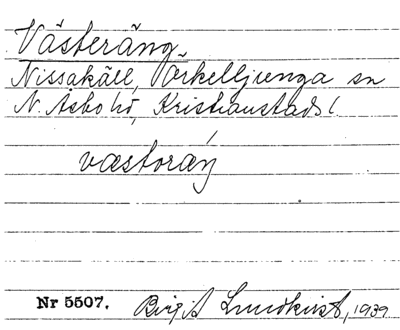 Västeräng
Nissakäll, Örkelljunga sn
N. Åsbo hd, Kristianstads l
væstoráŋ
Nr 5507. Birgit Lundkvist, 1939